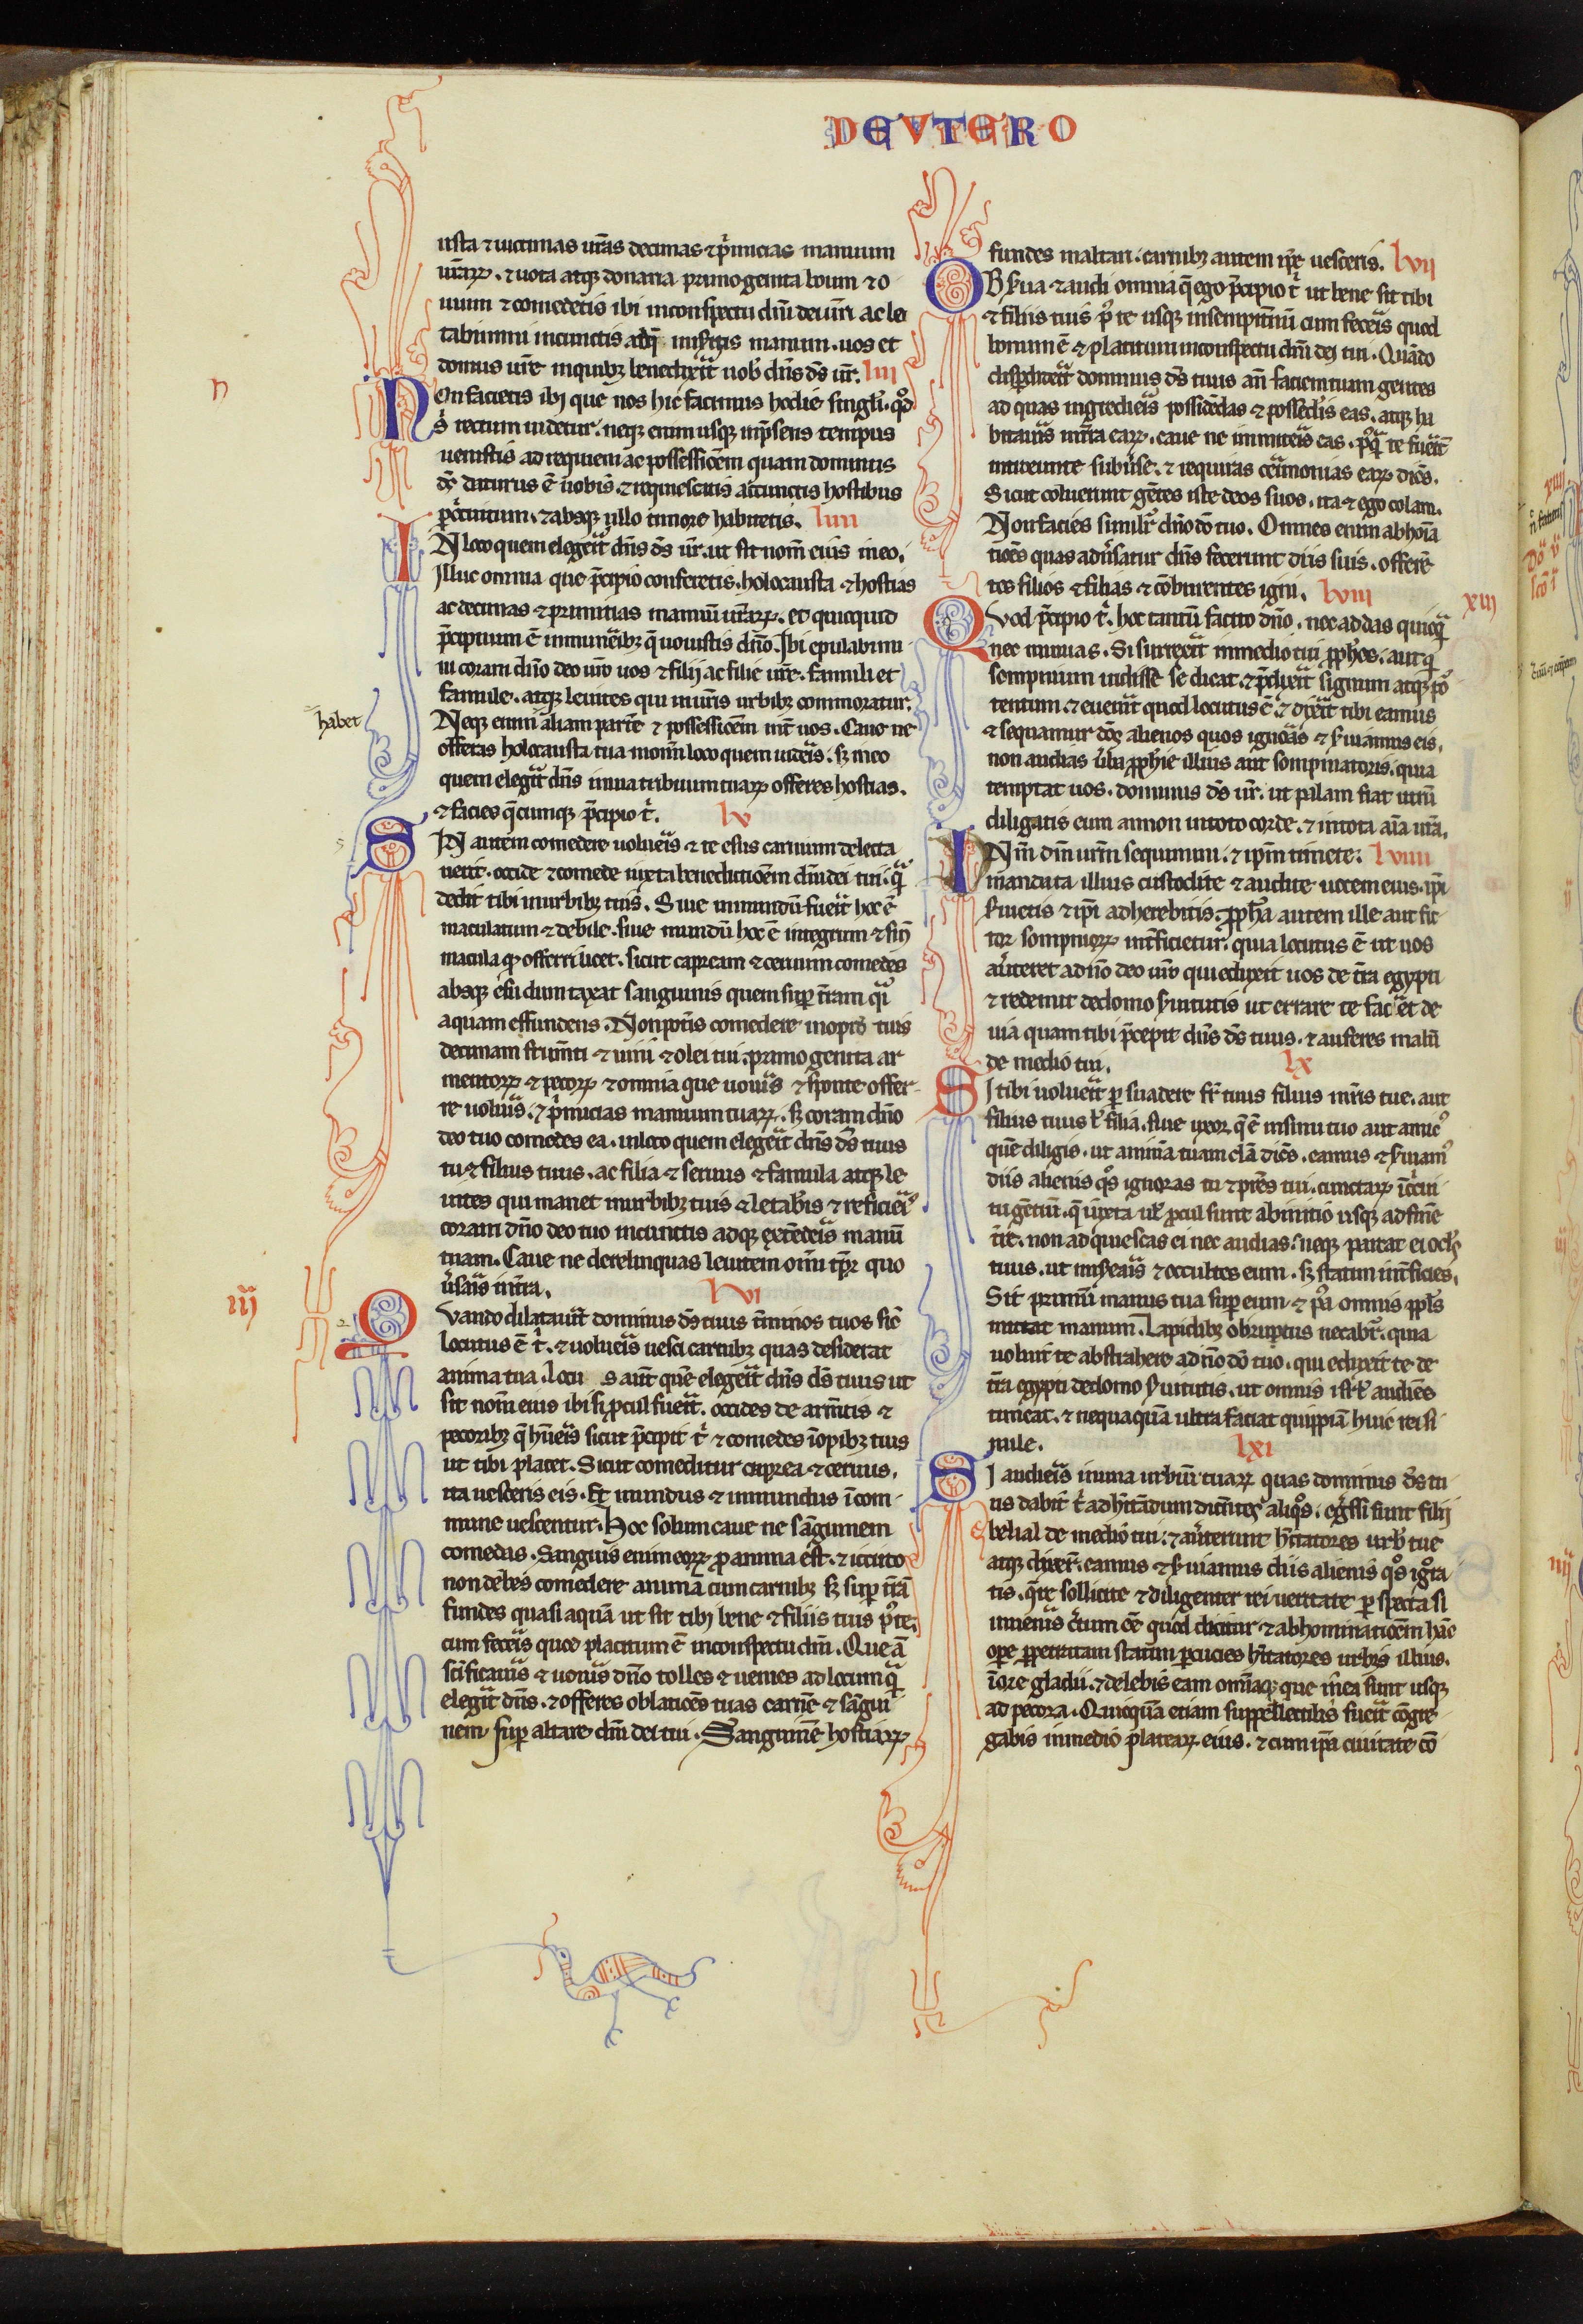 DEVTERO
usta ⁊ uictimas ur̄as decimas ⁊ p̓micias manuum
ur̄aꝝ. ⁊ uota atqꝫ donaria. primogenita boum ⁊ o
uium ⁊ comedetis ibi in conspectu dn̄i dei ur̄i ac le
tabimini in cunctis ad q̄ miseritis manum. uos et
domus ur̄e in quibꝫ benedixerit uob̓ dn̄s ds̄ ur̄. liii
n
Non facietis ibi que nos hic facimus hodie singl̓i. qd̓
s̓ rectum uidetur. neqꝫ enim usqꝫ in p̄sens tempus
uenistis ad requiem ac possessiōem quam dominus
ds̄ daturus ē uobis. ⁊ requiescatis a cunctis hostibus
p̱ circuitum. ⁊ absqꝫ ullo timore habitetis. liiii
IN loco quem elegerit dn̄s ds̄ ur̄. ut sit nom̄ eius in eo.
Illuc omnia que p̄cipio conferetis. holocausta ⁊ hostias
ac decimas ⁊ primitias manuū ur̄aꝝ. et quicquid
p̄cipuum ē in muneribꝫ q̄ uouistis dn̄o. Ibi epulabimi
ni coram dn̄o deo ur̄o uos ⁊ filii ac filie ur̄e. famuli et
famule. atqꝫ leuites qui in ur̄is urbibꝫ commoratur.
habet
Neqꝫ enim aliam partē ⁊ possessiōem int̄ uos. Caue ne
offeras holocausta tua in om̄i loco quem uideris. sꝫ in eo
quem elegerit dn̄s in una tribuum tuaꝝ offeres hostias.
⁊ facies q̄cumqꝫ p̄cipio t̓. lv
SIN autem comedere uolueris ⁊ te esus carnium delecta
uerit. occide ⁊ comede iuxta benedictiōem dn̄i dei tui. q̄
dedit tibi in urbibꝫ tuis. Siue inmundū fuerit hoc ē
maculatum ⁊ debile. siue mundū hoc ē integrum ⁊ sin̄
macula qd̓ offerri licet. sicut capream ⁊ ceruum comedes
absqꝫ esu dumtaxat sanguinis quem sup̱ tr̄am q̓i
aquam effundens. Non pot̄is comedere in opid̓ tuis
decimam frum̄ti ⁊ uini ⁊ olei tui. primogenita ar
mentoꝝ ⁊ pecoꝝ ⁊ omnia que uoueris ⁊ sponte offer
re uolueris. ⁊ p̓micias manuum tuaꝝ. sꝫ coram dn̄o
deo tuo comedes ea. in loco quem elegerit dn̄s ds̄ tuus
tu ⁊ filius tuus. ac filia ⁊ seruus ⁊ famula atqꝫ le
uites qui manet in urbibꝫ tuis ⁊ letab̓is ⁊ reficier̓
coram dn̄o deo tuo in cunctis ad qꝫ extēderis manū
tuam. Caue ne derelinquas leuitem om̄i tp̱r quo
ūsaris in tr̄a. lvi
iiij
Quando dilatauerit dominus ds̄ tuus t̄minos tuos sic̄
locutus ē t̓. ⁊ uolueris uesci carnibꝫ quas desiderat
anima tua. locu s aut̄ quē elegerit dn̄s ds̄ tuus ut
sit nom̄ eius ibi si p̱cul fuerit. occides de arm̄tis ⁊
pecoribꝫ q̄ hūeris sicut p̄cipit t̓ ⁊ comedes ī opibꝫ tuis
ut tibi placet. Sicut comeditur caprea ⁊ ceruus.
ita uesceris eis. Et mundus ⁊ inmundus ī com
mune uescentur. Hoc solum caue ne sanguinem
comedas. Sanguis enim eoꝝ pro anima est. ⁊ iccirco
non debes comedere animā cum carnibꝫ sꝫ sup̱ tr̄ā
fundes quasi aquā ut sit tibi bene ⁊ filiis tuis p̓ te.
cum feceris quod placitum ē in conspectu dn̄i. Que ā
sc̄ificaueris ⁊ uoueris dn̄o tolles ⁊ uenies ad locum q̄
elegerit dn̄s. ⁊ offeres oblatiōes tuas carnē ⁊ sangui
nem sup̱ altare dn̄i dei tui. Sanguinē hostiaꝝ
fundes in altari. carnibꝫ autem ip̄e uesceris. lvii
OBserua ⁊ audi omnia q̄ ego p̄cipio t̓ ut bene sit tibi
⁊ filiis tuis p̓ te usqꝫ in sempit̄nū cum feceris quod
bonum ē ⁊ placitum in conspectu dn̄i dei tui. Quādo
disp̱diderit dominus ds̄ tuus an̄ faciem tuam gentes
ad quas ingredieris possidēdas ⁊ possed̓is eas. atqꝫ ha
bitaueris in tr̄a eaꝝ. caue ne imiteris eas. p̓q̄ te fuerīt
introeunte subūse. ⁊ requiras cerimonias eaꝝ dicēs.
Sicut coluerunt gētes iste deos suos. ita ⁊ ego colam.
Non facies simil̓r dn̄o dō tuo. Omnes enim abhoīa
tiōes quas aduersatur dn̄s fecerunt diis suis. offerē
tes filios ⁊ filias ⁊ cōburentes igni. lviii
xiij
Quod p̄cipio t̓. hoc tantū facito dn̄o. nec addas quicq̄
nec minuas. Si surrexerit in medio tui ꝓph̓es. aut q̓
sompnium uidisse se dicat. ⁊ p̄dixerit signum atqꝫ po̓
tentum. ⁊ euenerit quod locutus ē ⁊ dixerit tibi eamus
⁊ sequamur deos alienos quos ignoras ⁊ s̓uiamus eis.
non audias ūba ꝓph̓ie illius aut sompniatoris. quia
temptat uos. dominus ds̄ ur̄. ut palam fiat utrū
diligatis eum an non in toto corde. ⁊ in tota aīa ur̄a.
DN̄m dm̄ ur̄m sequimini. ⁊ ip̄m timete. lviiii
mandata illius custodite ⁊ audite uocem eius. ip̄i
s̓uietis ⁊ ip̄i adherebitis. ꝓph̓a autem ille aut fic
tor sompnioꝝ int̄ficietur. quia locutus ē ut uos
auerteret a dn̄o deo ur̄o qui eduxit uos de tr̄a egypti
⁊ redemit de domo s̓uitutis ut errare te faceret de
uia quam tibi p̄cepit dn̄s ds̄ tuus. ⁊ auferes malū
de medio tui. lx
SI tibi uoluerit p̱suadere fr̄ tuus filius mr̄is tue. aut
filius tuus ł filia. siue uxor q̄ ē in sinu tuo aut amic̓
quē diligis. ut animā tuam clā dicēs. eamus ⁊ s̓uiam̓
diis alienis q̓s ignoras tu ⁊ pr̄es tui. cunctaꝝ ī circui
tu gētiū. q̄ iuxta uł p̱cul sunt ab initio usqꝫ ad finē
tr̄e. non adquiescas ei nec audias. neqꝫ parcat ei ocl̓s
tuus. ut miserearis ⁊ occultes eum. sꝫ statim int̄ficies.
Sit primū manus tua sup̱ eum ⁊ p̓a omnis ppl̓s
mittat manum. Lapidibꝫ obruptus necabit̄. quia
uoluit te abstrahere a dn̄o dō tuo. qui eduxit te de
tr̄a egypti de domo s̓uitutis. ut omnis isrł audiēs
timeat. ⁊ nequaquā ultra faciat quippiā huic rei si
mile. lxi
SI audieris in una urbiū tuaꝝ quas dominus ds̄ tu
us dabit t̓ ad hītādum dicentes aliq̓s. egressi sunt filii
belial de medio tui. ⁊ auerterunt hītatores urb̓ tue
atqꝫ dixer̄. eamus ⁊ s̓uiamus diis alienis q̓s ig̓ra
tis. q̄re sollicite ⁊ diligenter rei ueritate p̱specta si
inueneris certum eē quod dicitur ⁊ abhominatiōem hāc
ope p̱petratam statim p̱cucies hītatores urbis illius.
ī ore gladii. ⁊ delebis eam omniaqꝫ que in ea sunt usqꝫ
ad pecora. Quicquā etiam suppellectilis fuerit cōgre
gabis in medio plateaꝝ eius. ⁊ cum ip̄a ciuitate cō